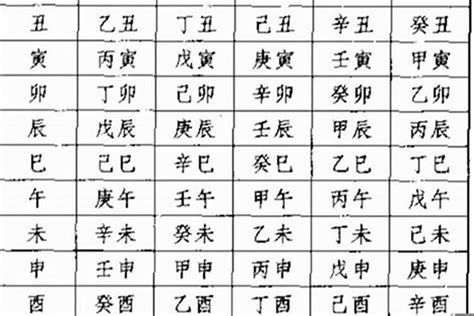 丑 乙丑 丁丑 己丑 辛丑 癸丑
寅 丙寅 戊寅 庚寅 壬寅 甲寅
卯 丁卯 己卯 辛卯 癸卯 乙卯
辰 戊辰 庚辰 壬辰 甲辰 丙辰
巳 己巳 辛巳 癸巳 乙巳 丁巳
午 庚午 壬午 甲午 丙午 戊午
未 辛未 癸未 乙未 丁未 己未
申 壬申 甲申 丙申 戊申 庚申
酉 癸酉 乙酉 丁酉 己酉 辛酉